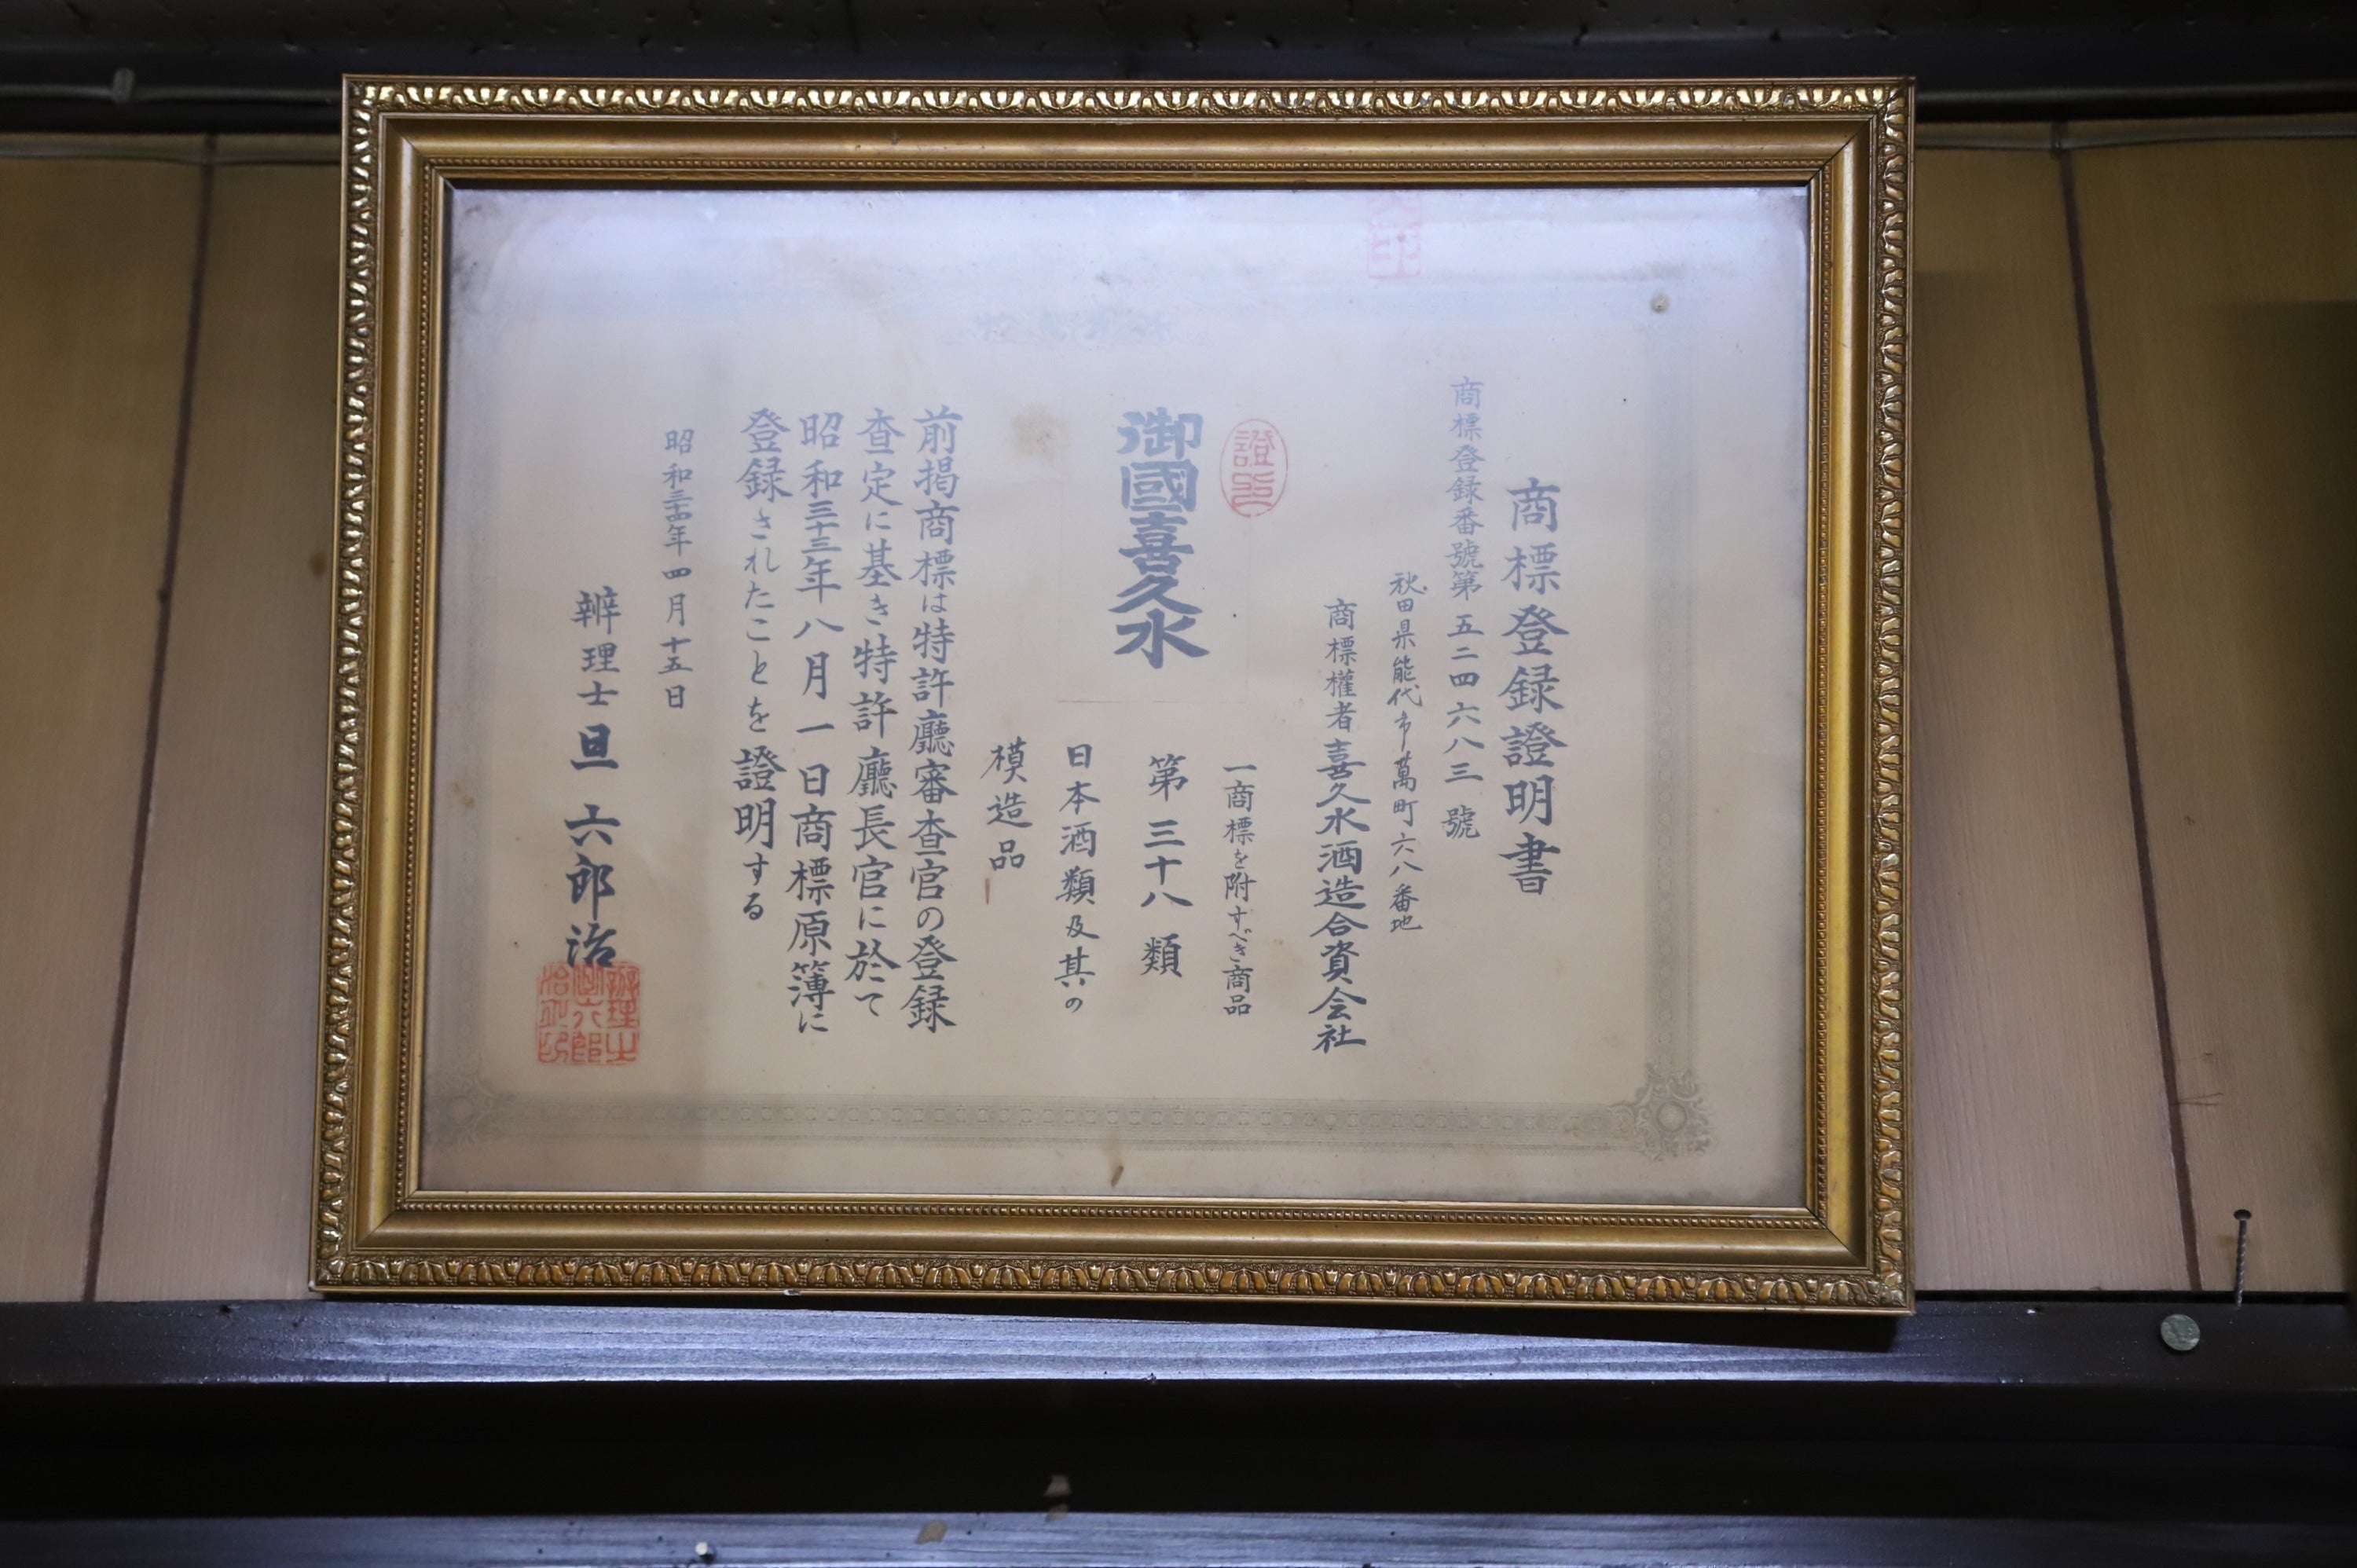 商標登録證明書
商標登録番號第五二四六八三號
秋田県能代市萬町六八番地
商標權者喜久水酒造合資会社
證印
御國喜久水
一商標を附すべき商品
第三十八類
日本酒類及其の
模造品
前掲商標は特許廳審査官の登録
査定に基き特許廳長官に於て
昭和三十三年八月一日商標原簿に
登録されたことを證明する
昭和三十四年四月十五日
辨理士 旦 六郎治